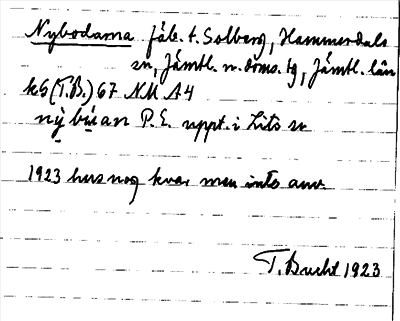 Nybodarna fäb. t. Solberg, Hammerdals
sn, Jämtl. n. doms. tg, Jämtl. län
k6 (T.B.) 67 NM A4
nỳ bu̇an P.E. uppt. i Lits sn
1923 hus nog kvar men inte anv.
T. Bucht 1923